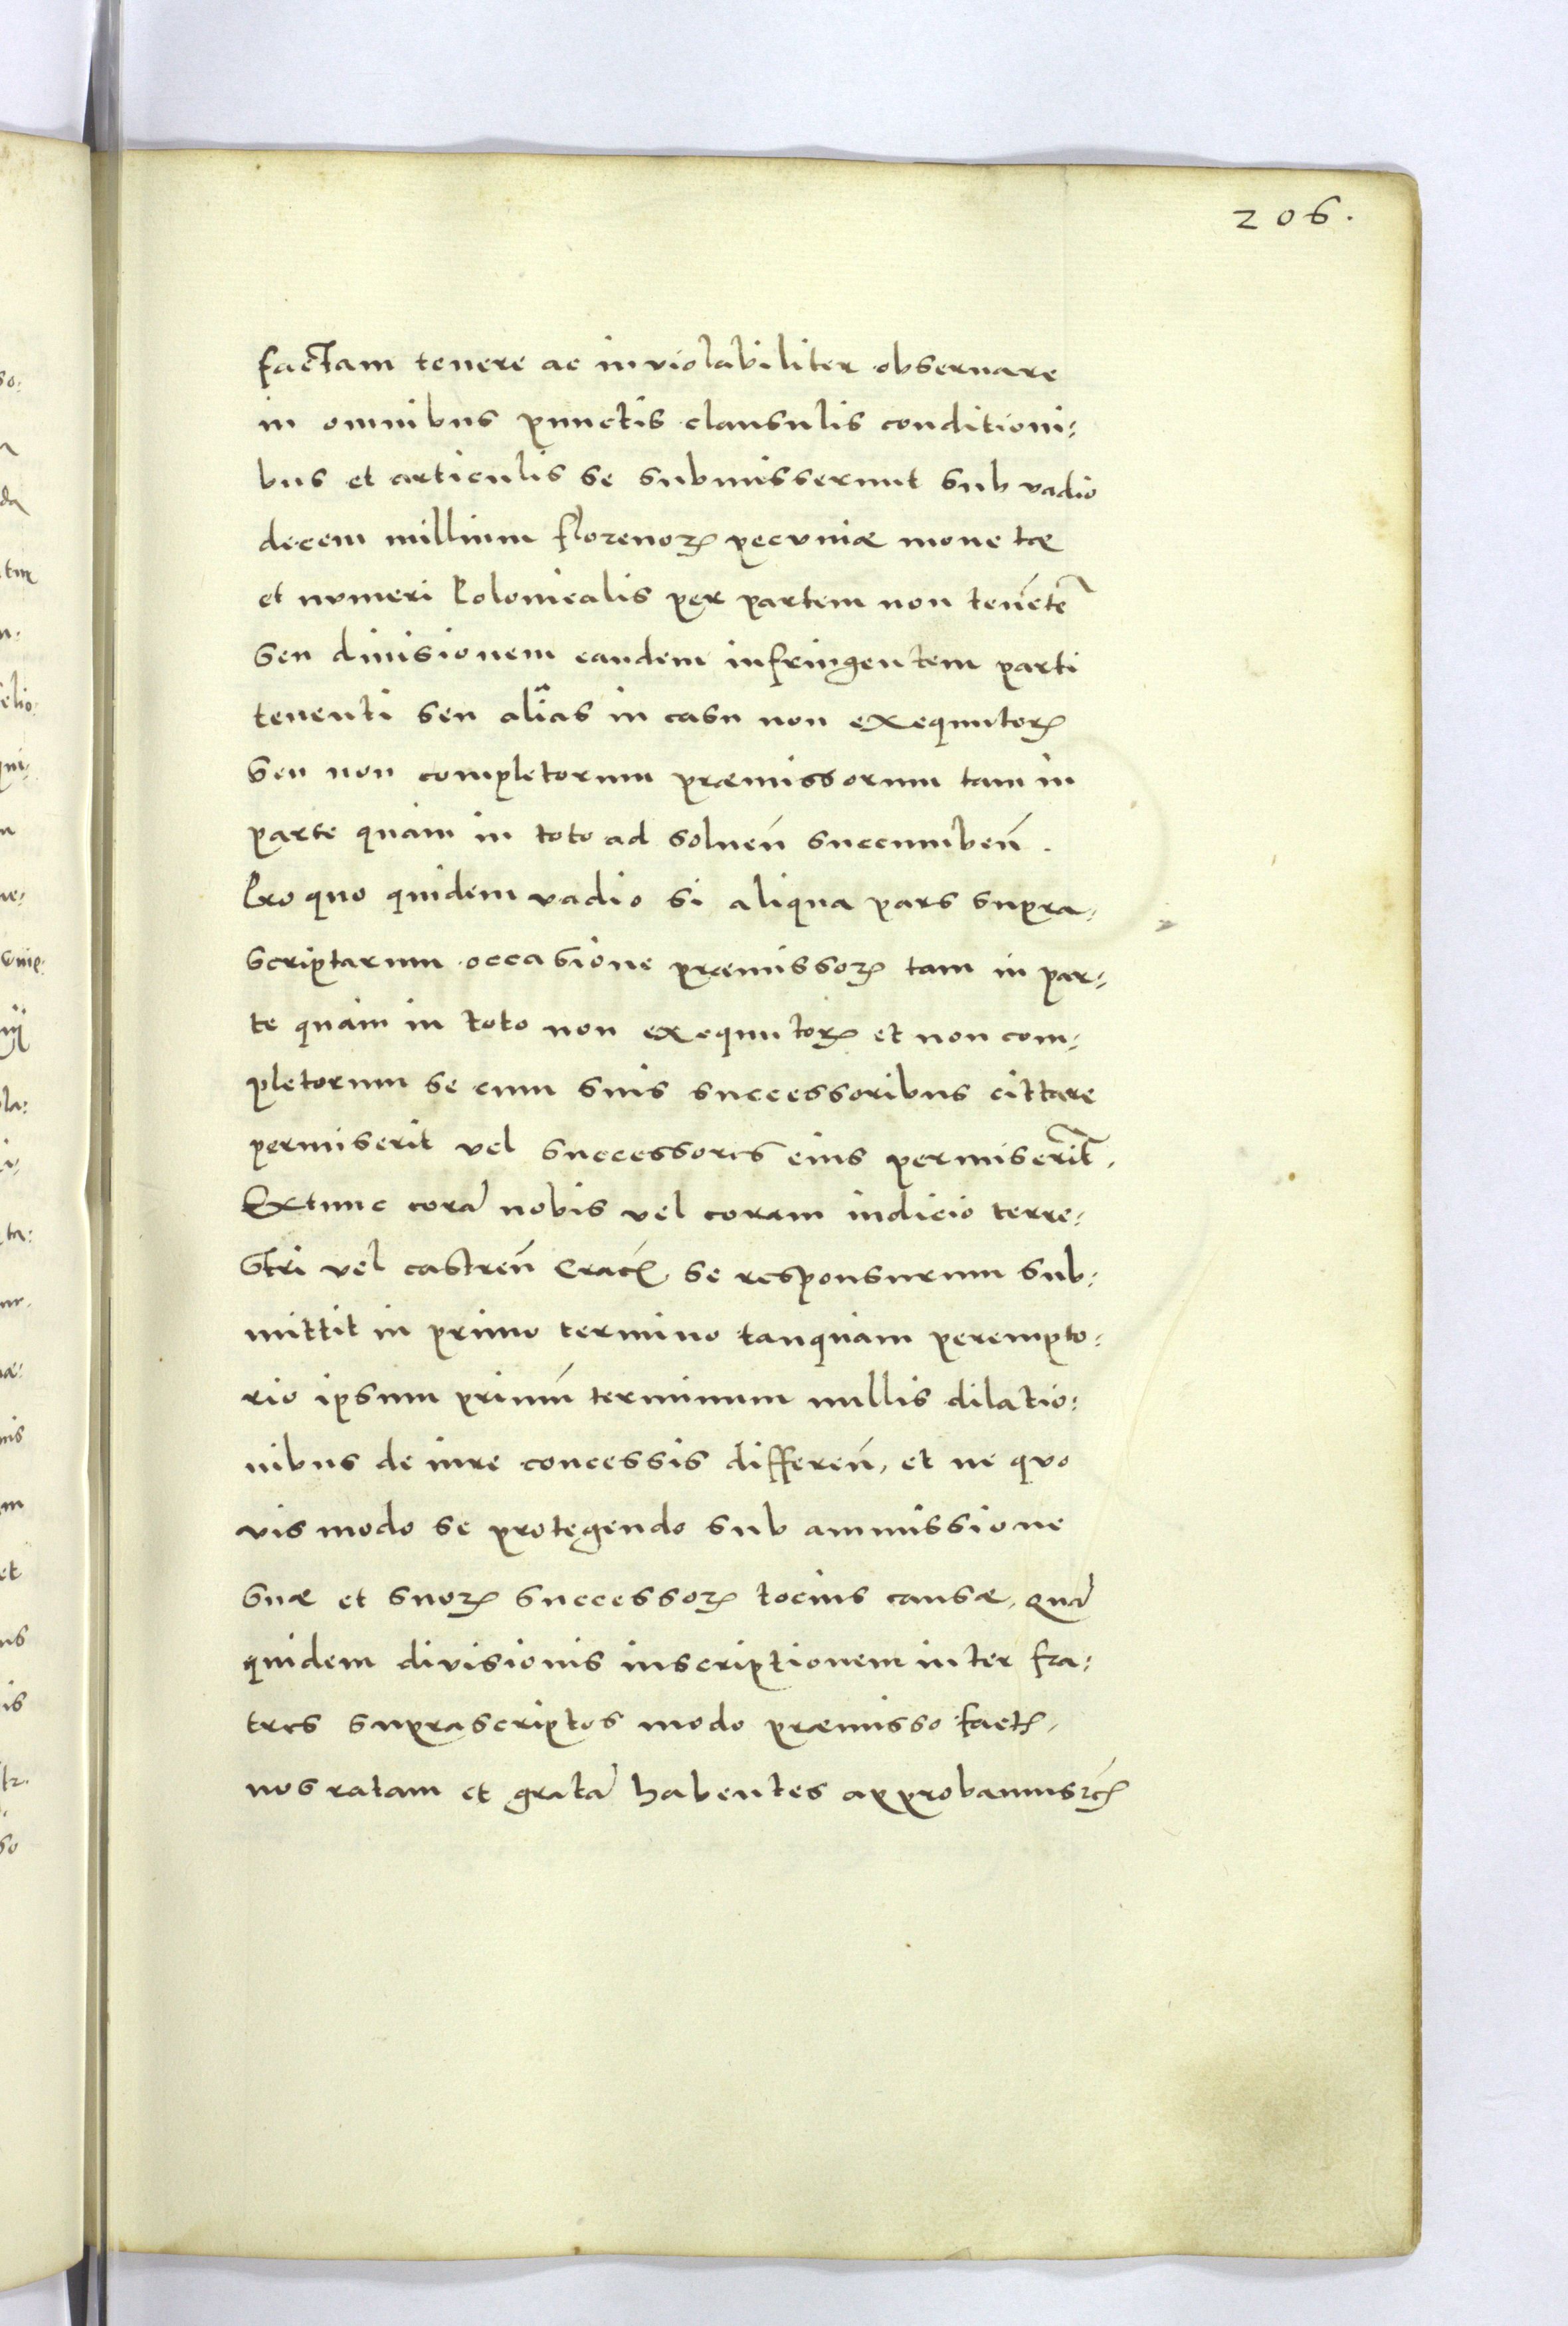 206.
factam tenere ac inviolabiliter obseruare
in omnibus punctis clausulis conditioni:
bus et articulis se submisserunt sub vadio
decem millium florenoꝝ pecuniæ monetæ
et numeri Polonicalis per partem non tenētē
seu diuisionem eandem infringentem parti
tenenti seu aliãs in casu non exequutoꝝ
seu non completorum præmissorum tam in
parte quam in toto ad soluen̄ succumben̄.
Pro quo quidem vadio si aliqua pars supra:
scriptarum occasione præmissoꝝ tam in par:
te quam in toto non exequutoꝝ et non com:
pletorum se cum suis successoribus cittare
permiserit vel successores eius permiserīt.
Extunc corā nobis vel coram iudicio terre:
stri vel castren̄ Cracꝭ se responsurum sub:
mittit in primo termino tanquam perempto:
rio ipsum primū terminum nullis dilatio:
nibus de iure concessis differen̄, et ne quo
vis modo se protegendo sub ammissione
suæ et suoꝝ successoꝝ tocius causæ. Quā
quidem divisionis inscriptionem inter fra:
tres suprascriptos modo præmisso factꝭ,
nos ratam et gratā habentes approbamus ꝛcꝭ